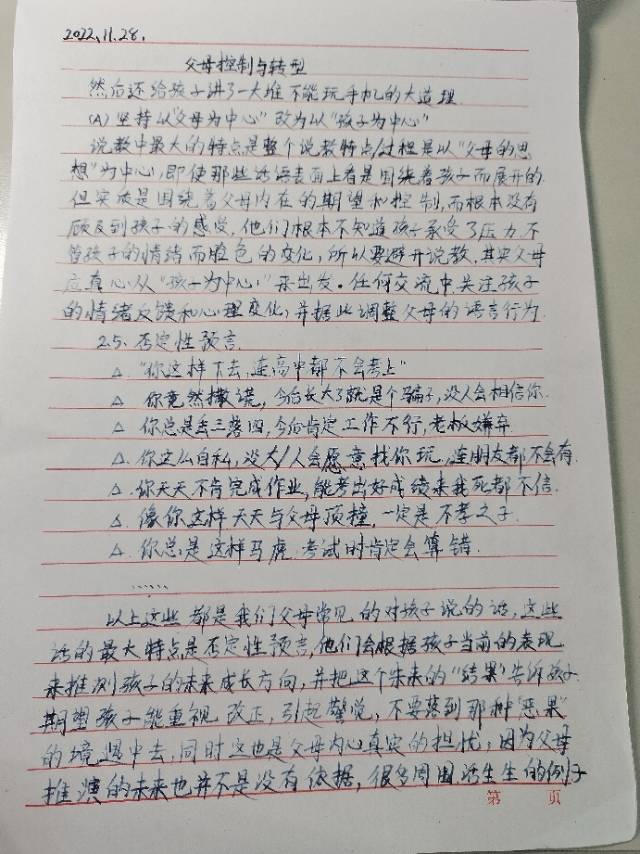 2022.11.28.
父母控制与转型
然后还给孩子讲了一大堆不能玩手机的大道理.
(A) 坚持以"父母为中心"改为以"孩子为中心"
说教中最大的特点是整个说教特点/过程是以"父母的思
想"为中心,即使那些话语表面上看是围绕着孩子而展开的.
但实质是围绕着父母内在的期望和控制,而根本没有
顾及到孩子的感受,他们根本不知道孩子承受了压力,不
管孩子的情绪而脸色的变化,所以要避开说教,其实父母
应真心从"孩子为中心"来出发.任何交流中关注孩子
的情绪反馈和心理变化,并据此调整父母的语言行为.
2.5、否定性预言.
△ "你这样下去,连高中都不会考上"
△ 你竟然撒谎,今后长大了就是个骗子,没人会相信你.
△ 你总是丢三落四,今后肯定工作不行,老板嫌弃.
△ 你这么自私,没大/人会愿意找你玩,连朋友都不会有.
△ 你天天不肯完成作业,能考出好成绩来我死都不信.
△ 像你这样天天与父母顶撞,一定是不孝之子.
△ 你总是这样马虎,考试时肯定会算错.
......
以上这些都是我们父母常见的对孩子说的话,这些
话的最大特点是否定性预言,他们会根据孩子当前的表现
来推测孩子的未来成长方向,并把这个未来的"结果"告诉孩子
期望孩子能重视改正,引起警觉,不要落到那种"恶果"
的境界中去,同时这也是父母内心真实的担忧,因为父母
推演的未来也并不是没有依据,很多周围活生生的例子
第 页